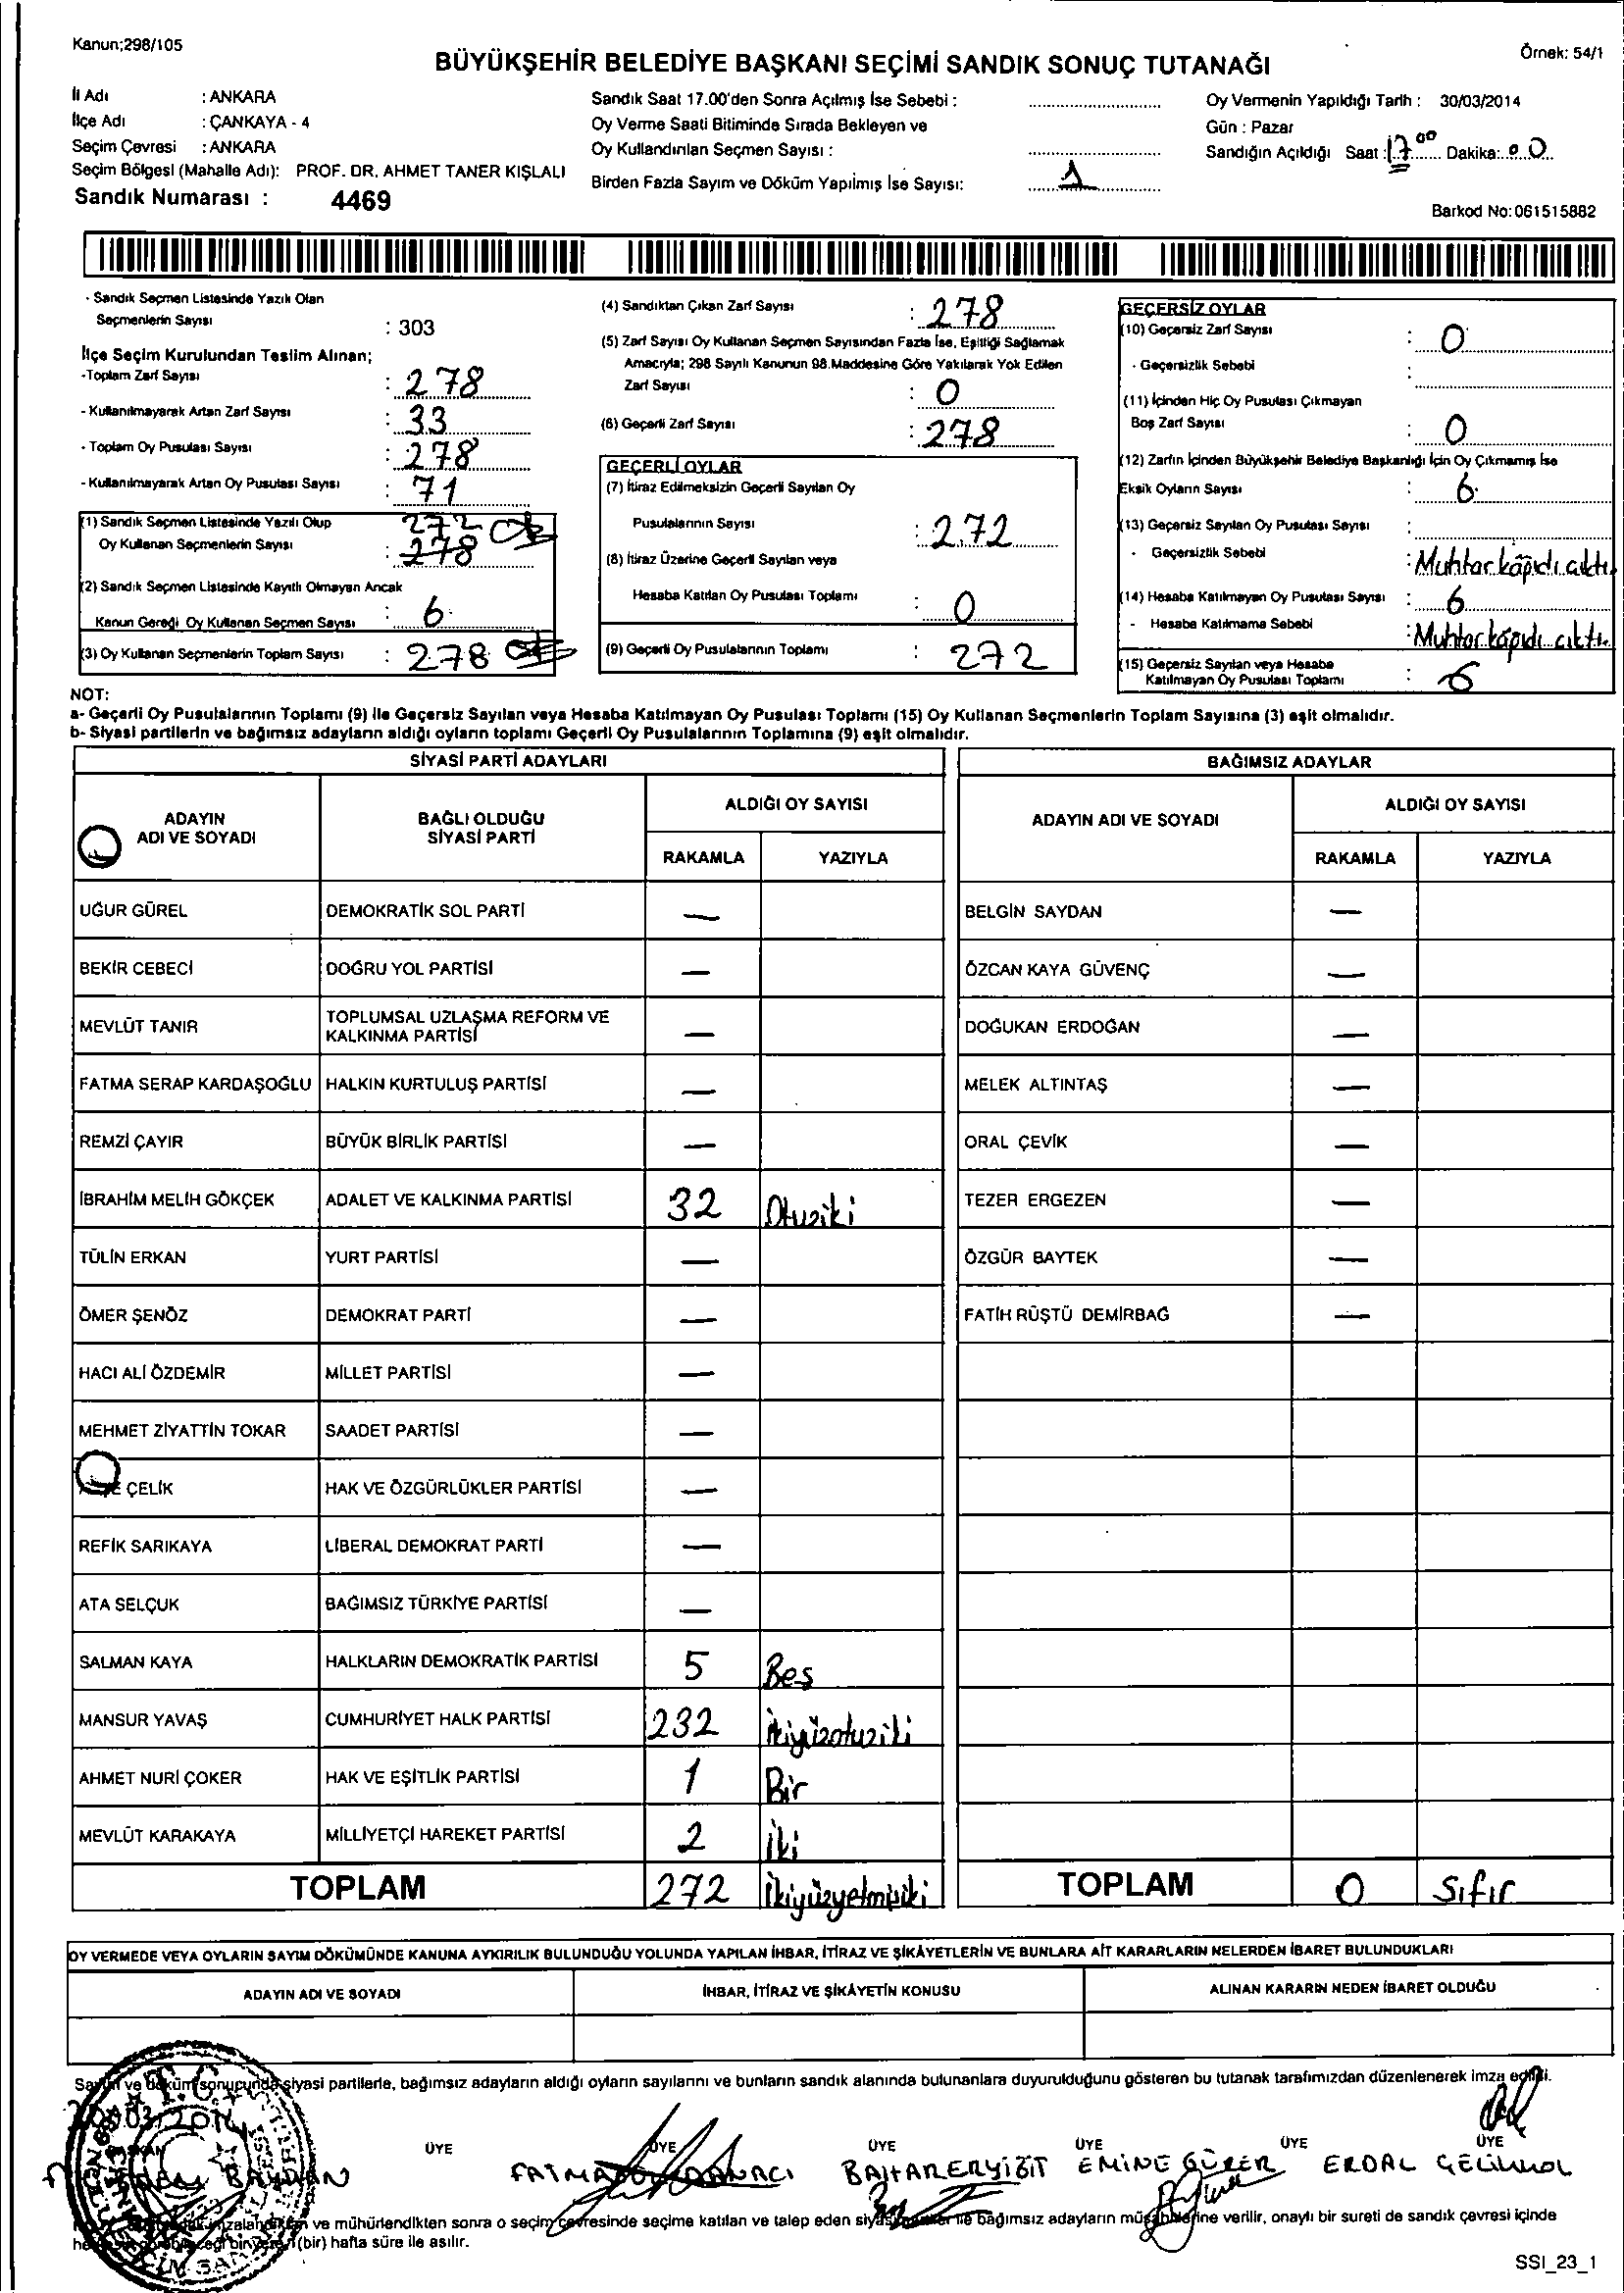 Kanun;298/105
Örnek: 54/1
BÜYÜKŞEHİR BELEDİYE BAŞKANI SEÇİMİ SANDIK SONUÇ TUTANAĞI
İl Adı : ANKARA
İlçe Adı : ÇANKAYA - 4
Seçim Çevresi : ANKARA
Seçim Bölgesi (Mahalle Adı): PROF. DR. AHMET TANER KIŞLALI
Sandık Numarası : 4469
Sandık Saat 17.00'den Sonra Açılmış İse Sebebi :
Oy Verme Saati Bitiminde Sırada Bekleyen ve
Oy Kullandırılan Seçmen Sayısı :
Birden Fazla Sayım ve Döküm Yapılmış İse Sayısı: 1
Oy Vermenin Yapıldığı Tarih : 30/03/2014
Gün : Pazar
Sandığın Açıldığı Saat : 17 00 Dakika: 00
Barkod No: 061515882
- Sandık Seçmen Listesinde Yazılı Olan
Seçmenlerin Sayısı : 303
İlçe Seçim Kurulundan Teslim Alınan;
-Toplam Zarf Sayısı : 278
- Kullanılmayarak Artan Zarf Sayısı : 33
- Toplam Oy Pusulası Sayısı : 278
- Kullanılmayarak Artan Oy Pusulası Sayısı : 71
(1) Sandık Seçmen Listesinde Yazılı Olup 272
Oy Kullanan Seçmenlerin Sayısı : 278
(2) Sandık Seçmen Listesinde Kayıtlı Olmayan Ancak
Kanun Gereği Oy Kullanan Seçmen Sayısı : 6
(3) Oy Kullanan Seçmenlerin Toplam Sayısı : 278
(4) Sandıktan Çıkan Zarf Sayısı : 278
(5) Zarf Sayısı Oy Kullanan Seçmen Sayısından Fazla İse, Eşitliği Sağlamak
Amacıyla; 298 Sayılı Kanunun 98.Maddesine Göre Yakılarak Yok Edilen
Zarf Sayısı : 0
(6) Geçerli Zarf Sayısı : 278
GEÇERLİ OYLAR
(7) İtiraz Edilmeksizin Geçerli Sayılan Oy
Pusulalarının Sayısı : 272
(8) İtiraz Üzerine Geçerli Sayılan veya
Hesaba Katılan Oy Pusulası Toplamı : 0
(9) Geçerli Oy Pusulalarının Toplamı : 272
GEÇERSİZ OYLAR
(10) Geçersiz Zarf Sayısı : 0
- Geçersizlik Sebebi :
(11) İçinden Hiç Oy Pusulası Çıkmayan
Boş Zarf Sayısı : 0
(12) Zarfın İçinden Büyükşehir Belediye Başkanlığı İçin Oy Çıkmamış İse
Eksik Oyların Sayısı : 6
(13) Geçersiz Sayılan Oy Pusulası Sayısı :
- Geçersizlik Sebebi : Muhtar kağıdı çıktı.
(14) Hesaba Katılmayan Oy Pusulası Sayısı : 6
- Hesaba Katılmama Sebebi : Muhtar kağıdı çıktı.
(15) Geçersiz Sayılan veya Hesaba
Katılmayan Oy Pusulası Toplamı : 6
NOT:
a- Geçerli Oy Pusulalarının Toplamı (9) ile Geçersiz Sayılan veya Hesaba Katılmayan Oy Pusulası Toplamı (15) Oy Kullanan Seçmenlerin Toplam Sayısına (3) eşit olmalıdır.
b- Siyasi partilerin ve bağımsız adayların aldığı oyların toplamı Geçerli Oy Pusulalarının Toplamına (9) eşit olmalıdır.
SİYASİ PARTİ ADAYLARI
ADAYIN ADI VE SOYADI
BAĞLI OLDUĞU SİYASİ PARTİ
ALDIĞI OY SAYISI
RAKAMLA YAZIYLA
UĞUR GÜREL DEMOKRATİK SOL PARTİ —
BEKİR CEBECİ DOĞRU YOL PARTİSİ —
MEVLÜT TANIR TOPLUMSAL UZLAŞMA REFORM VE KALKINMA PARTİSİ —
FATMA SERAP KARDAŞOĞLU HALKIN KURTULUŞ PARTİSİ —
REMZİ ÇAYIR BÜYÜK BİRLİK PARTİSİ —
İBRAHİM MELİH GÖKÇEK ADALET VE KALKINMA PARTİSİ 32 Otuziki
TÜLİN ERKAN YURT PARTİSİ —
ÖMER ŞENÖZ DEMOKRAT PARTİ —
HACI ALİ ÖZDEMİR MİLLET PARTİSİ —
MEHMET ZİYATTİN TOKAR SAADET PARTİSİ —
ÇELİK HAK VE ÖZGÜRLÜKLER PARTİSİ —
REFİK SARIKAYA LİBERAL DEMOKRAT PARTİ —
ATA SELÇUK BAĞIMSIZ TÜRKİYE PARTİSİ —
SALMAN KAYA HALKLARIN DEMOKRATİK PARTİSİ 5 Beş
MANSUR YAVAŞ CUMHURİYET HALK PARTİSİ 232 İkiyüzotuziki
AHMET NURİ ÇOKER HAK VE EŞİTLİK PARTİSİ 1 Bir
MEVLÜT KARAKAYA MİLLİYETÇİ HAREKET PARTİSİ 2 İki
TOPLAM 272 İkiyüzyetmişiki
BAĞIMSIZ ADAYLAR
ADAYIN ADI VE SOYADI
ALDIĞI OY SAYISI
RAKAMLA YAZIYLA
BELGİN SAYDAN —
ÖZCAN KAYA GÜVENÇ —
DOĞUKAN ERDOĞAN —
MELEK ALTINTAŞ —
ORAL ÇEVİK —
TEZER ERGEZEN —
ÖZGÜR BAYTEK —
FATİH RÜŞTÜ DEMİRBAĞ —
TOPLAM 0 Sıfır
OY VERMEDE VEYA OYLARIN SAYIM DÖKÜMÜNDE KANUNA AYKIRILIK BULUNDUĞU YOLUNDA YAPILAN İHBAR, İTİRAZ VE ŞİKÂYETLERİN VE BUNLARA AİT KARARLARIN NELERDEN İBARET BULUNDUKLARI
ADAYIN ADI VE SOYADI
İHBAR, İTİRAZ VE ŞİKÂYETİN KONUSU
ALINAN KARARIN NEDEN İBARET OLDUĞU
Sayım ve döküm sonucunda siyasi partilerle, bağımsız adayların aldığı oyların sayılarını ve bunların sandık alanında bulunanlara duyurulduğunu gösteren bu tutanak tarafımızdan düzenlenerek imza edildi.
T.C.
ÜYE ÜYE ÜYE ÜYE ÜYE ÜYE
FATMA BAHAR ERYİĞİT EMİNE GÜRER ERDAL
ve mühürlendikten sonra o seçim çevresinde seçime katılan ve talep eden siyasi bağımsız adayların müşahitlerine verilir, onaylı bir sureti de sandık çevresi içinde
(bir) hafta süre ile asılır.
SSI_23_1